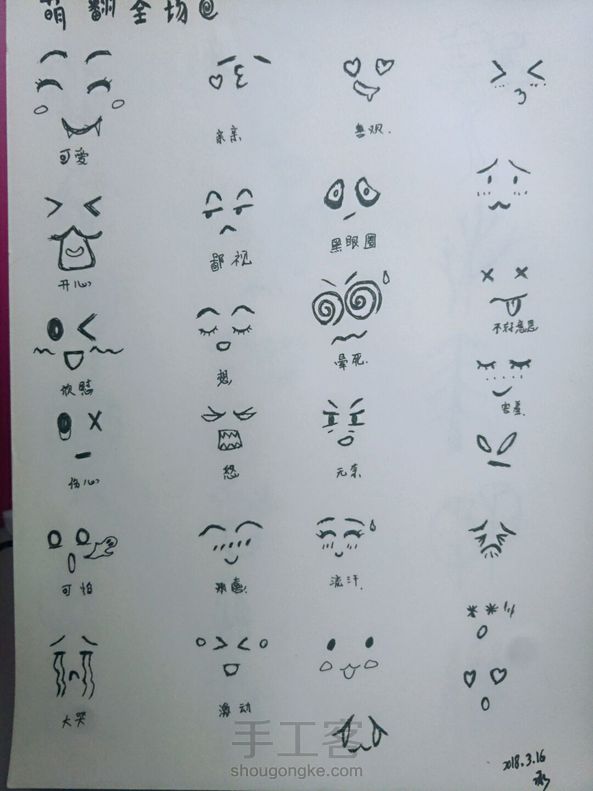 萌翻全场@
可爱
亲亲
鄙视
黑眼圈
开心
不好意思
想
晕死.
放
害羞.
怒
伤心
可怕
流汗.
大哭
激动
手工客
shougongke.com
2018.3.16